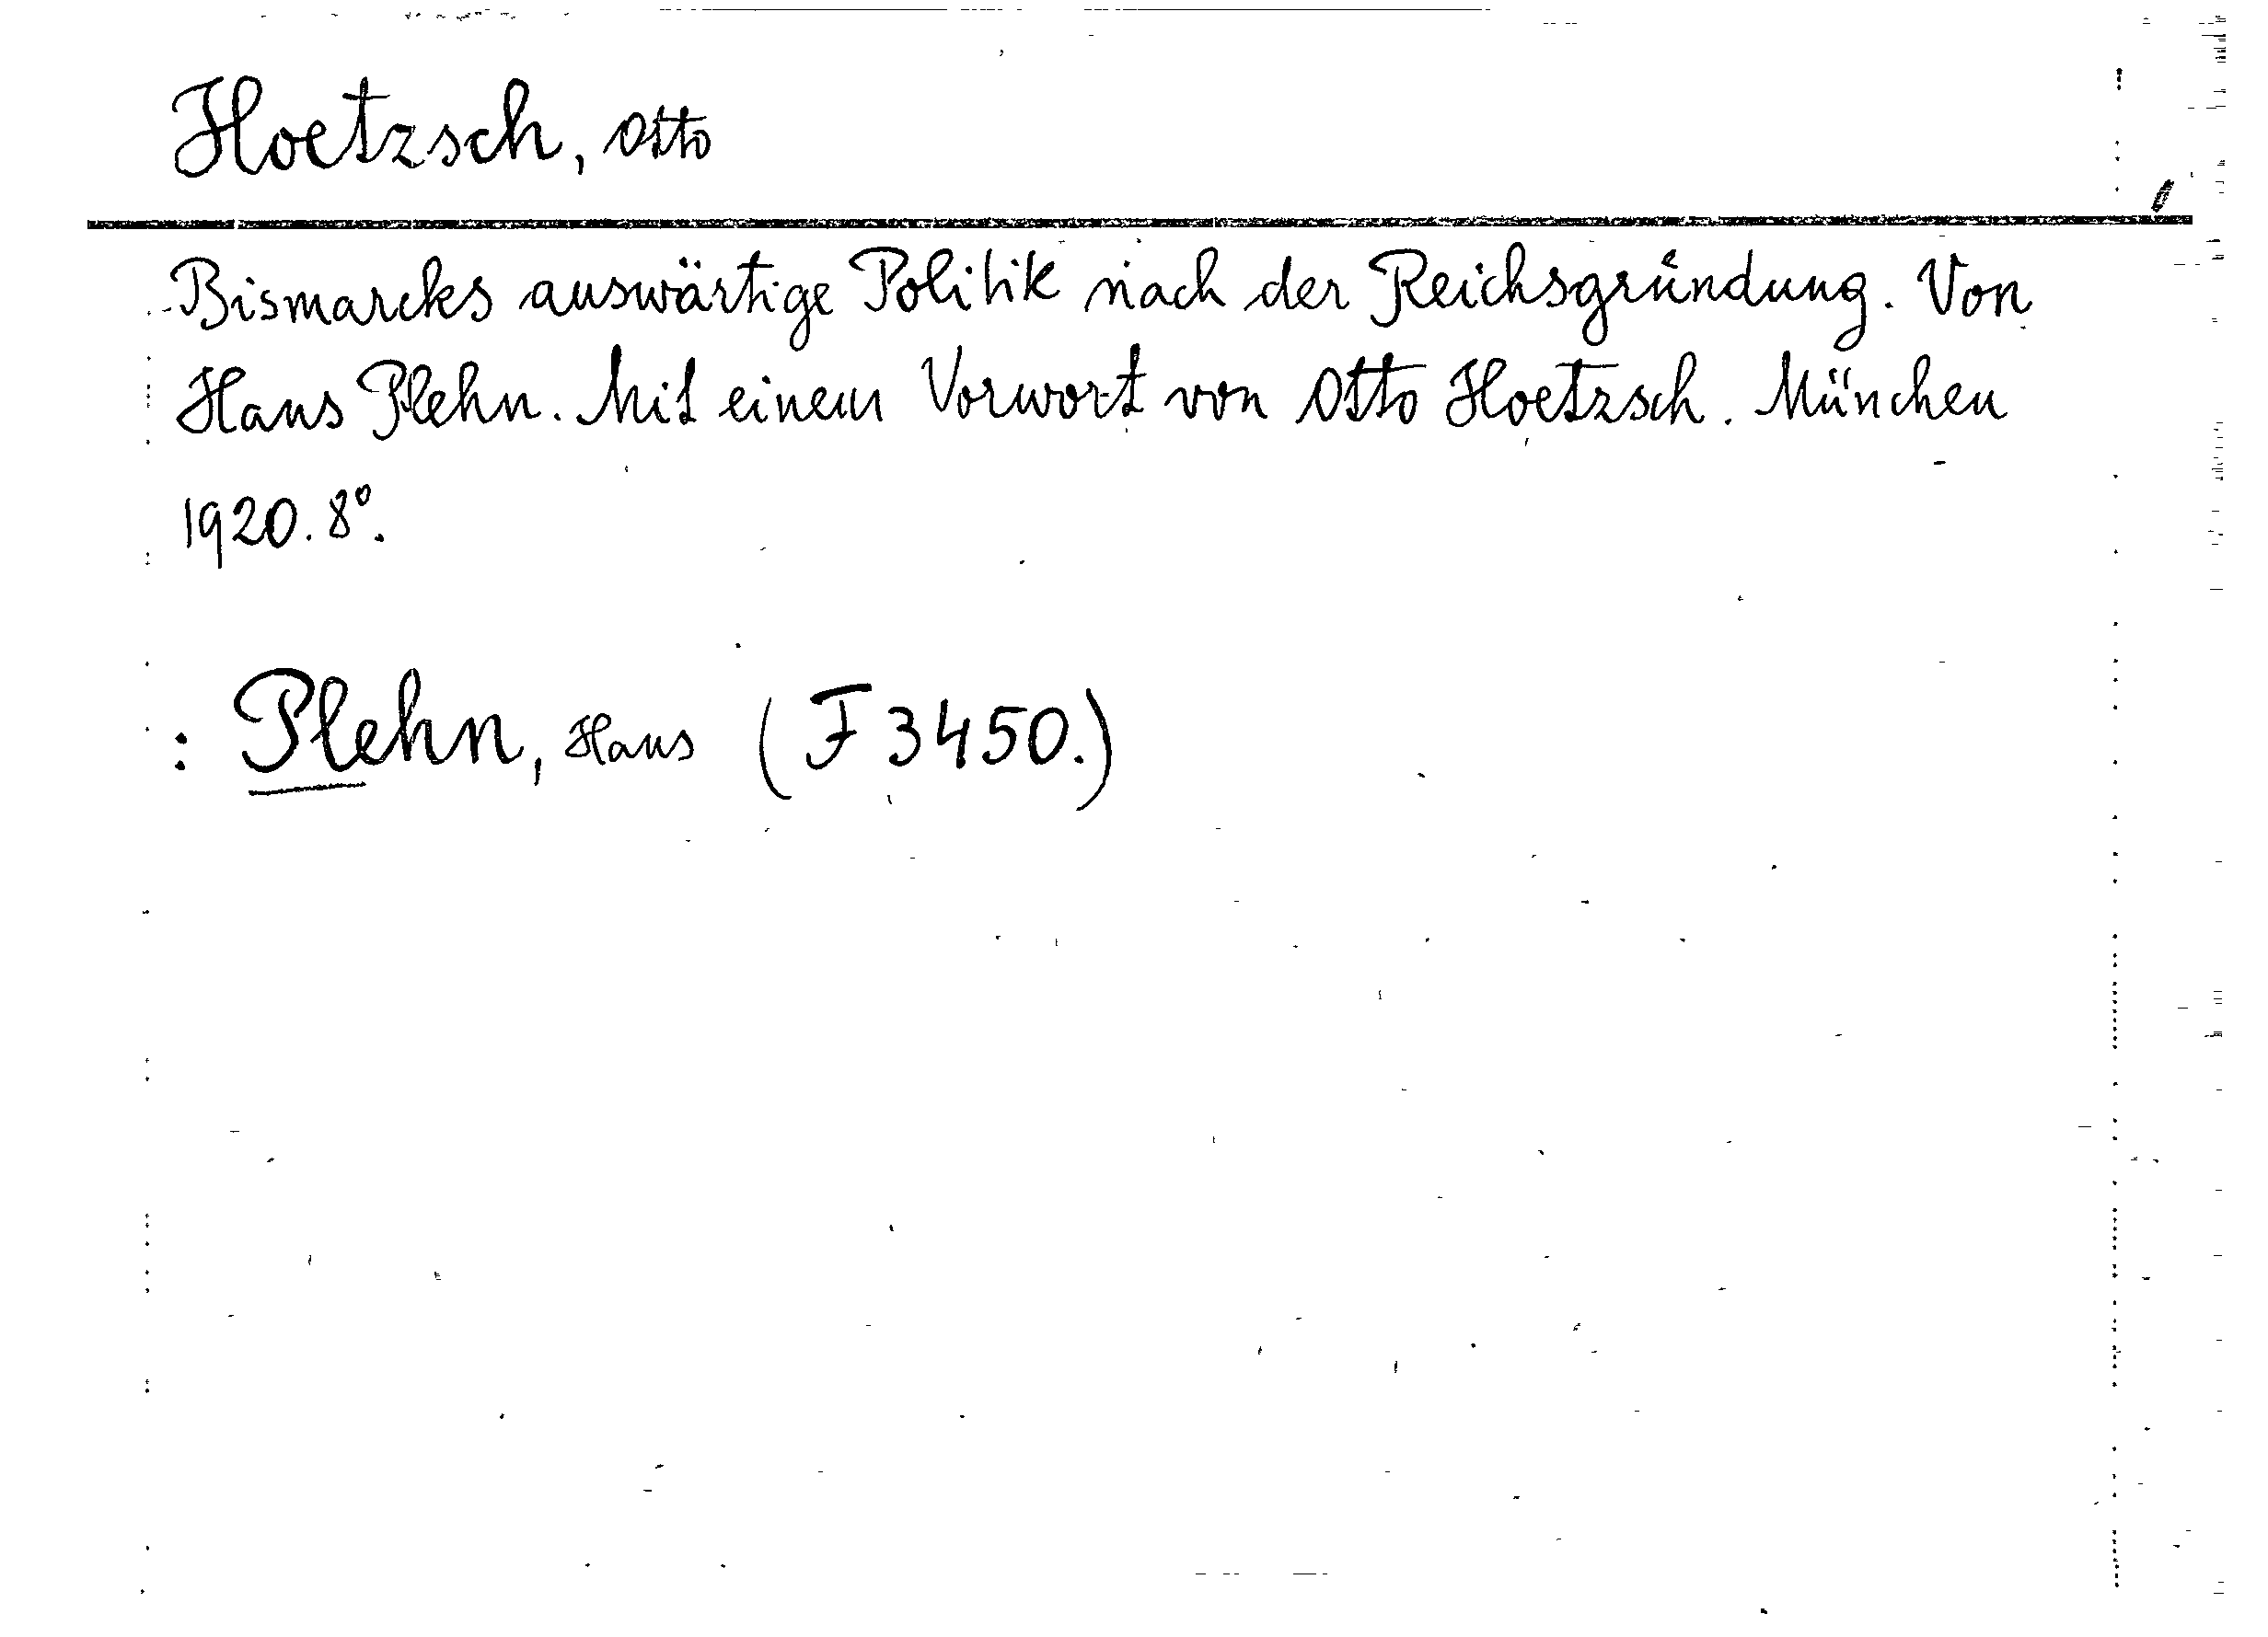 Hoetzsch, Otto
Bismarcks auswärtige Politik nach der Reichsgründung. Von
Hans Plehn. Mit einem Vorwort von Otto Hoetzsch. München
1920. 8°.
: Plehn, Hans (F 3450.)